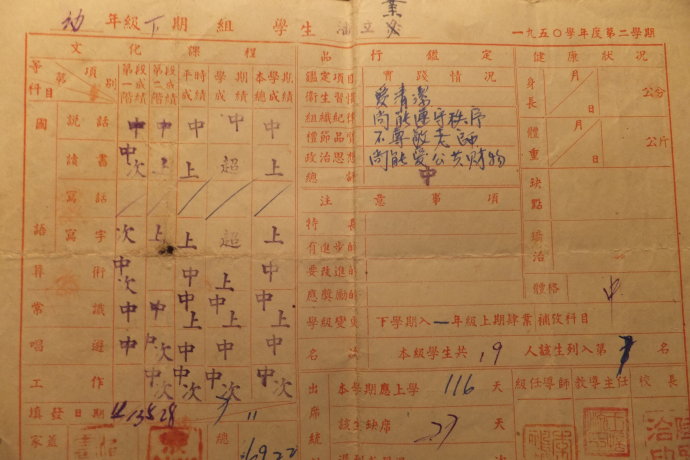 業
幼 年級 下 期 組 學生 立
一九五〇學年度第二學期
文化課程 品行鑑定 健康狀況
等第 項別 科目 第一階段成績 第二階段成績 平時成績 學期成績 本學期總成績 鑑定項目 實踐情況 身長 月 日 公分
衛生習慣 愛清潔
國語 說話 中 中 中 中 中 組織紀律 尚能遵守秩序 體重 月 日 公斤
禮節品質 不尊敬老師
讀書 中次 上 上 超 上 政治思想 尚能愛公共財物
總評 中
寫話 注意事項 缺點
寫字 次 上 上 超 上 特長的
有進步的 矯治
算術 中次 中 中 上 中 要改進的
應獎勵的 體格 中
常識 中 中 中上 中上 中上 學級變更 下學期入一年級上期肄業補攷科目
唱遊 中 中次 中 中 中 名次 本級學生共 19 人該生列入第 7 名
工作 中次 中次 中次 中次 出席統 本學期應上學 116 天 級任導師 教導主任 校長
填發日期 該生缺席 27 天
家蓋 總